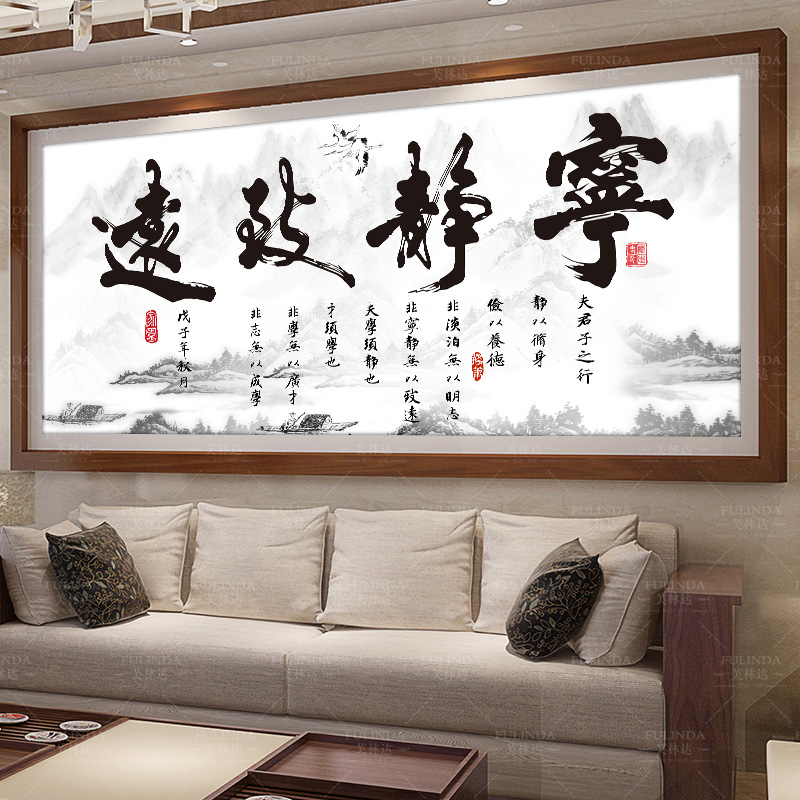 寧靜致遠
夫君子之行
静以脩身
儉以養德
非淡泊無以明志
非寧静無以致遠
夫學須静也
才須學也
非學無以廣才
非志無以成學
戊子年秋月
FULINDA
芙林达